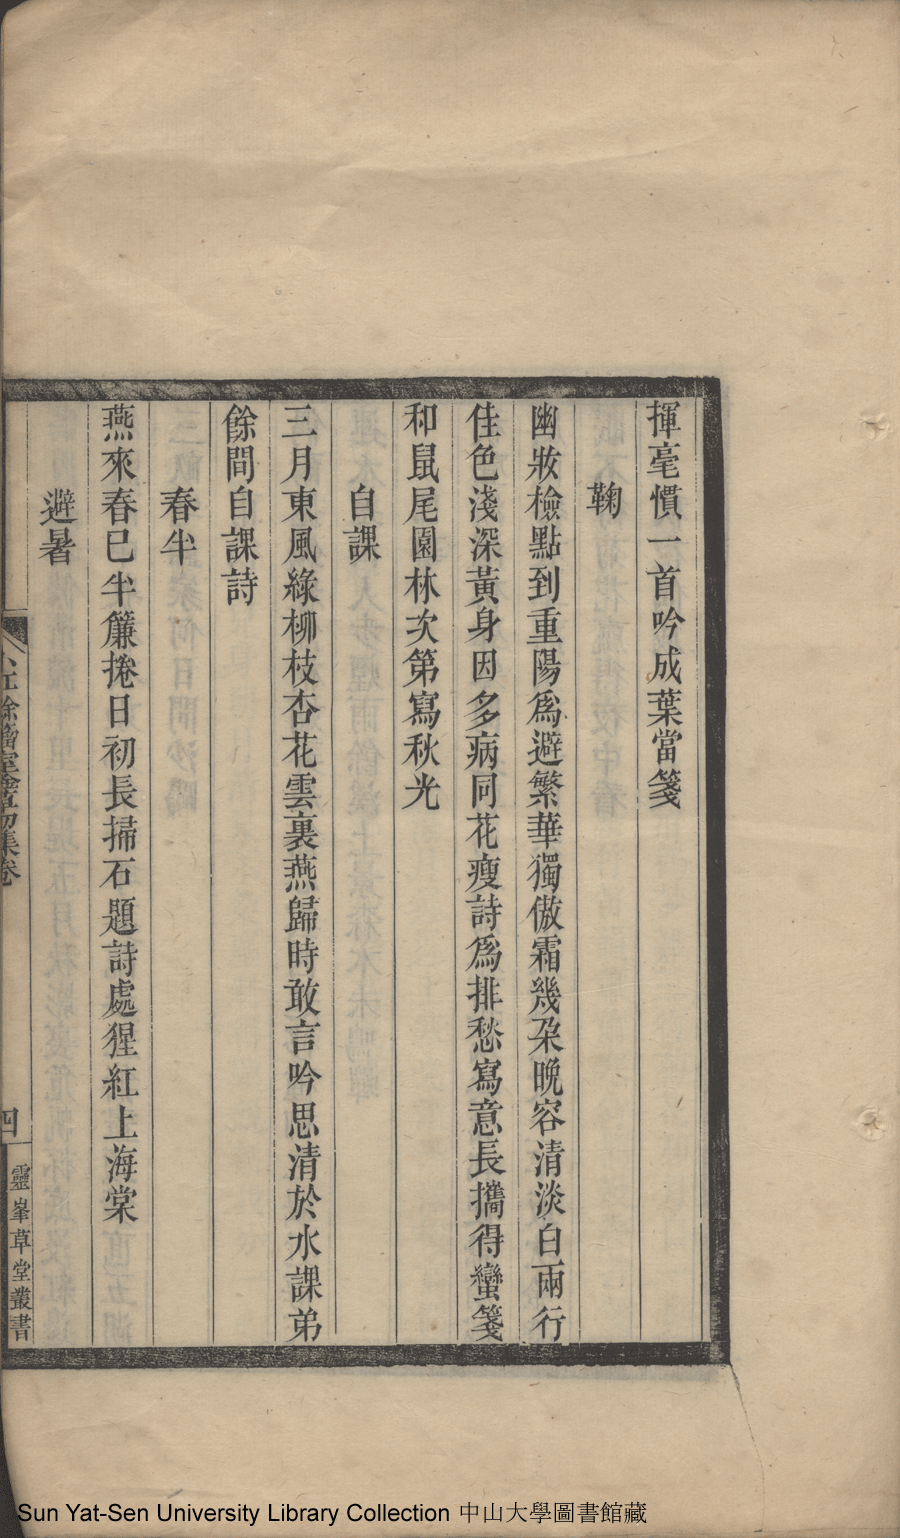 揮毫慣一首吟成葉當箋
鞠
幽妝檢點到重陽爲避繁華獨傲霜幾朶晚容清淡白兩行
佳色淺深黃身因多病同花瘦詩爲排愁寫意長攜得蠻箋
和鼠尾園林次第寫秋光
自課
三月東風綠柳枝杏花雲裏燕歸時敢言吟思清於水課弟
餘間自課詩
春半
燕來春已半簾捲日初長掃石題詩處猩紅上海棠
避暑
餘
室
集卷
四
靈峯草堂叢書
Sun Yat-Sen University Library Collection 中山大學圖書館藏